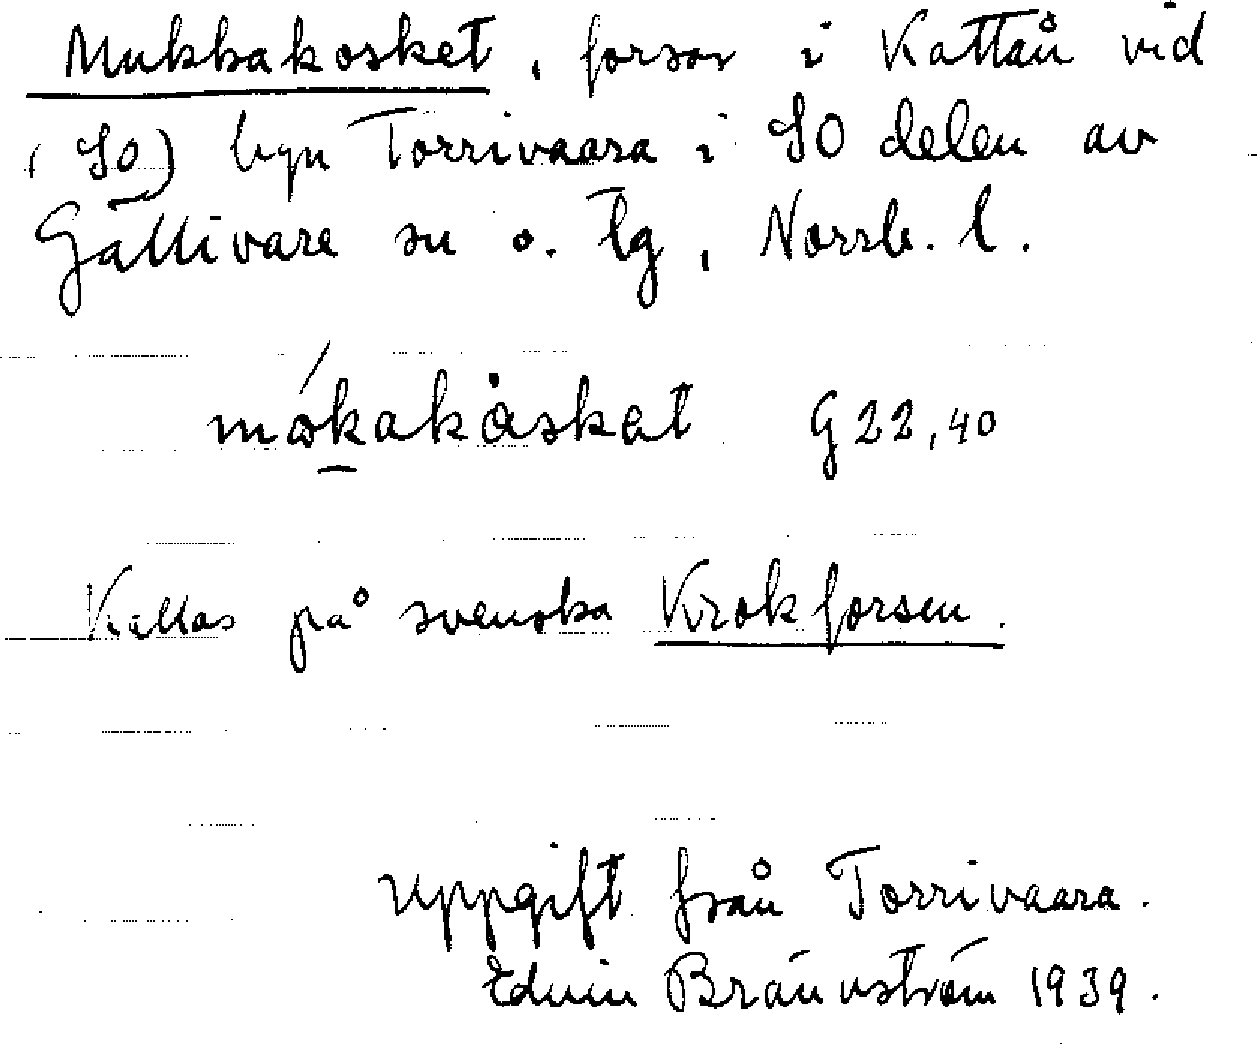 Mukkakosket, forsar i Kattån vid
(SO) byn Torrivaara i SO delen av
Gällivare sn o. tg, Norrb. l.
mókakåskat G 22,40
Kallas på svenska Krokforsen.
uppgift från Torrivaara.
Edvin Brännström 1939.